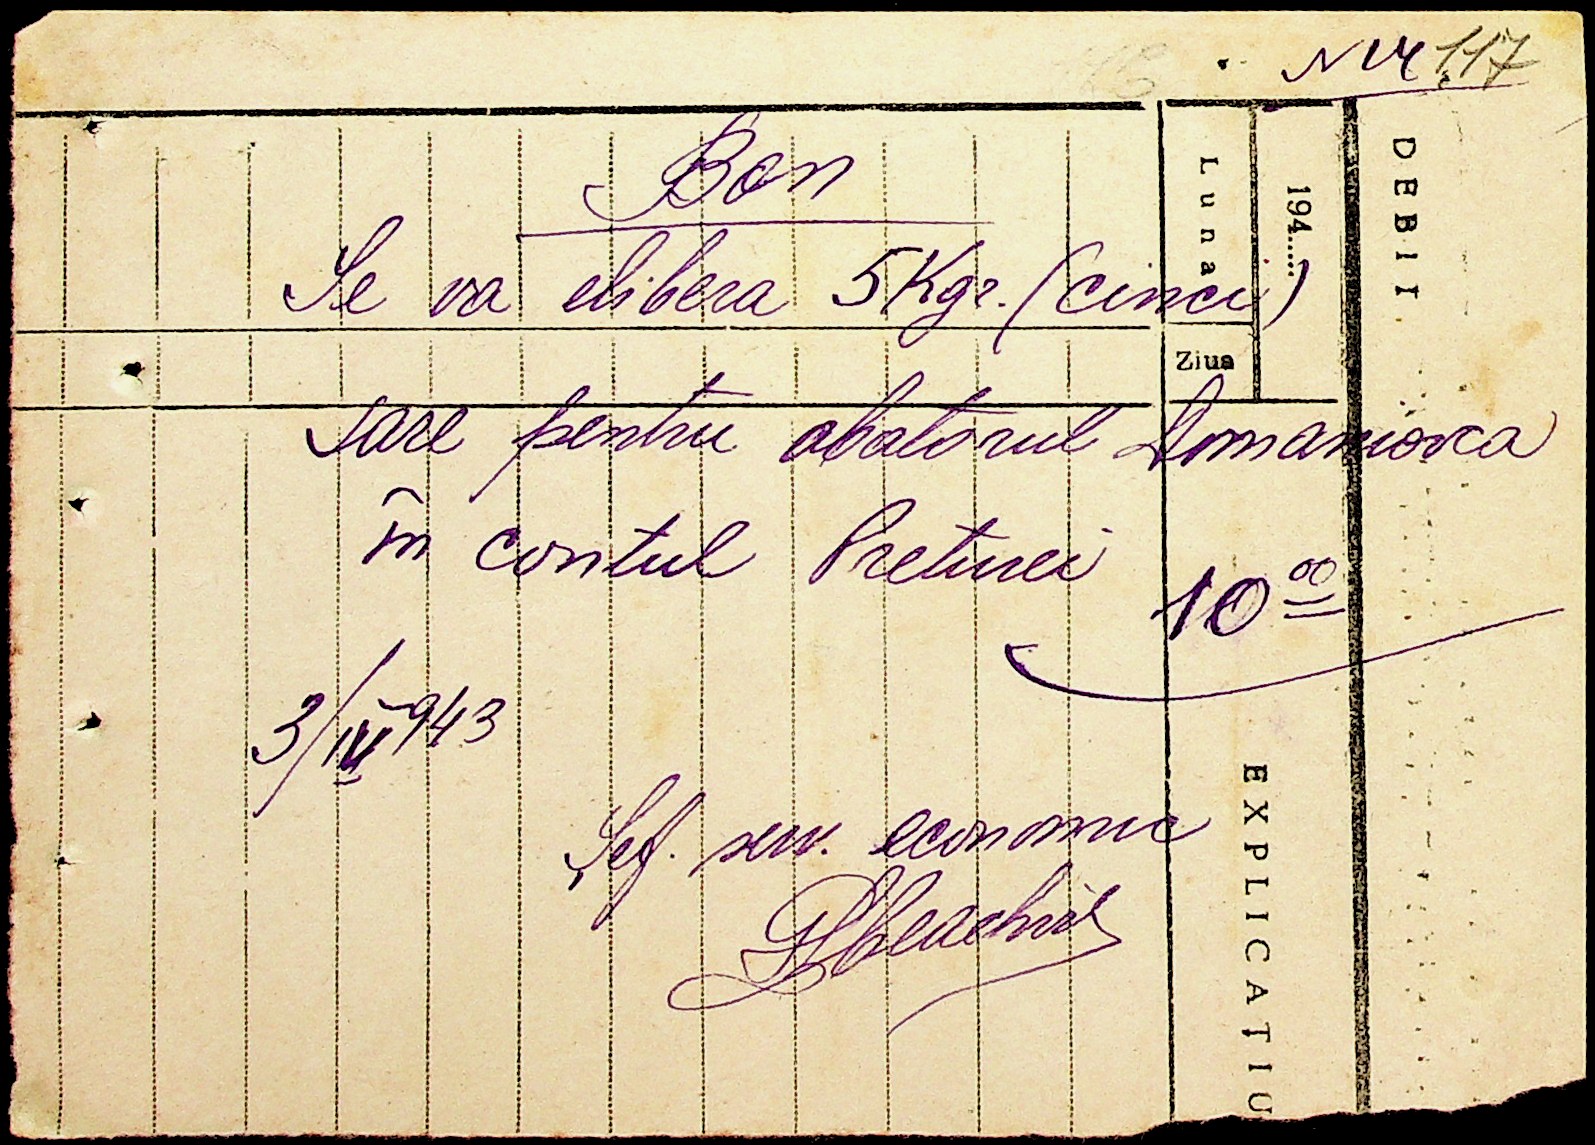 117
Bon
Se va elibera 5 Kgr. (cinci)
sare pentru abatorul Domaniovca
în contul Preturei
10 00
3/IV 943
Șef. serv. economic
DEBIT
194.....
Luna
Ziua
EXPLICAȚIU